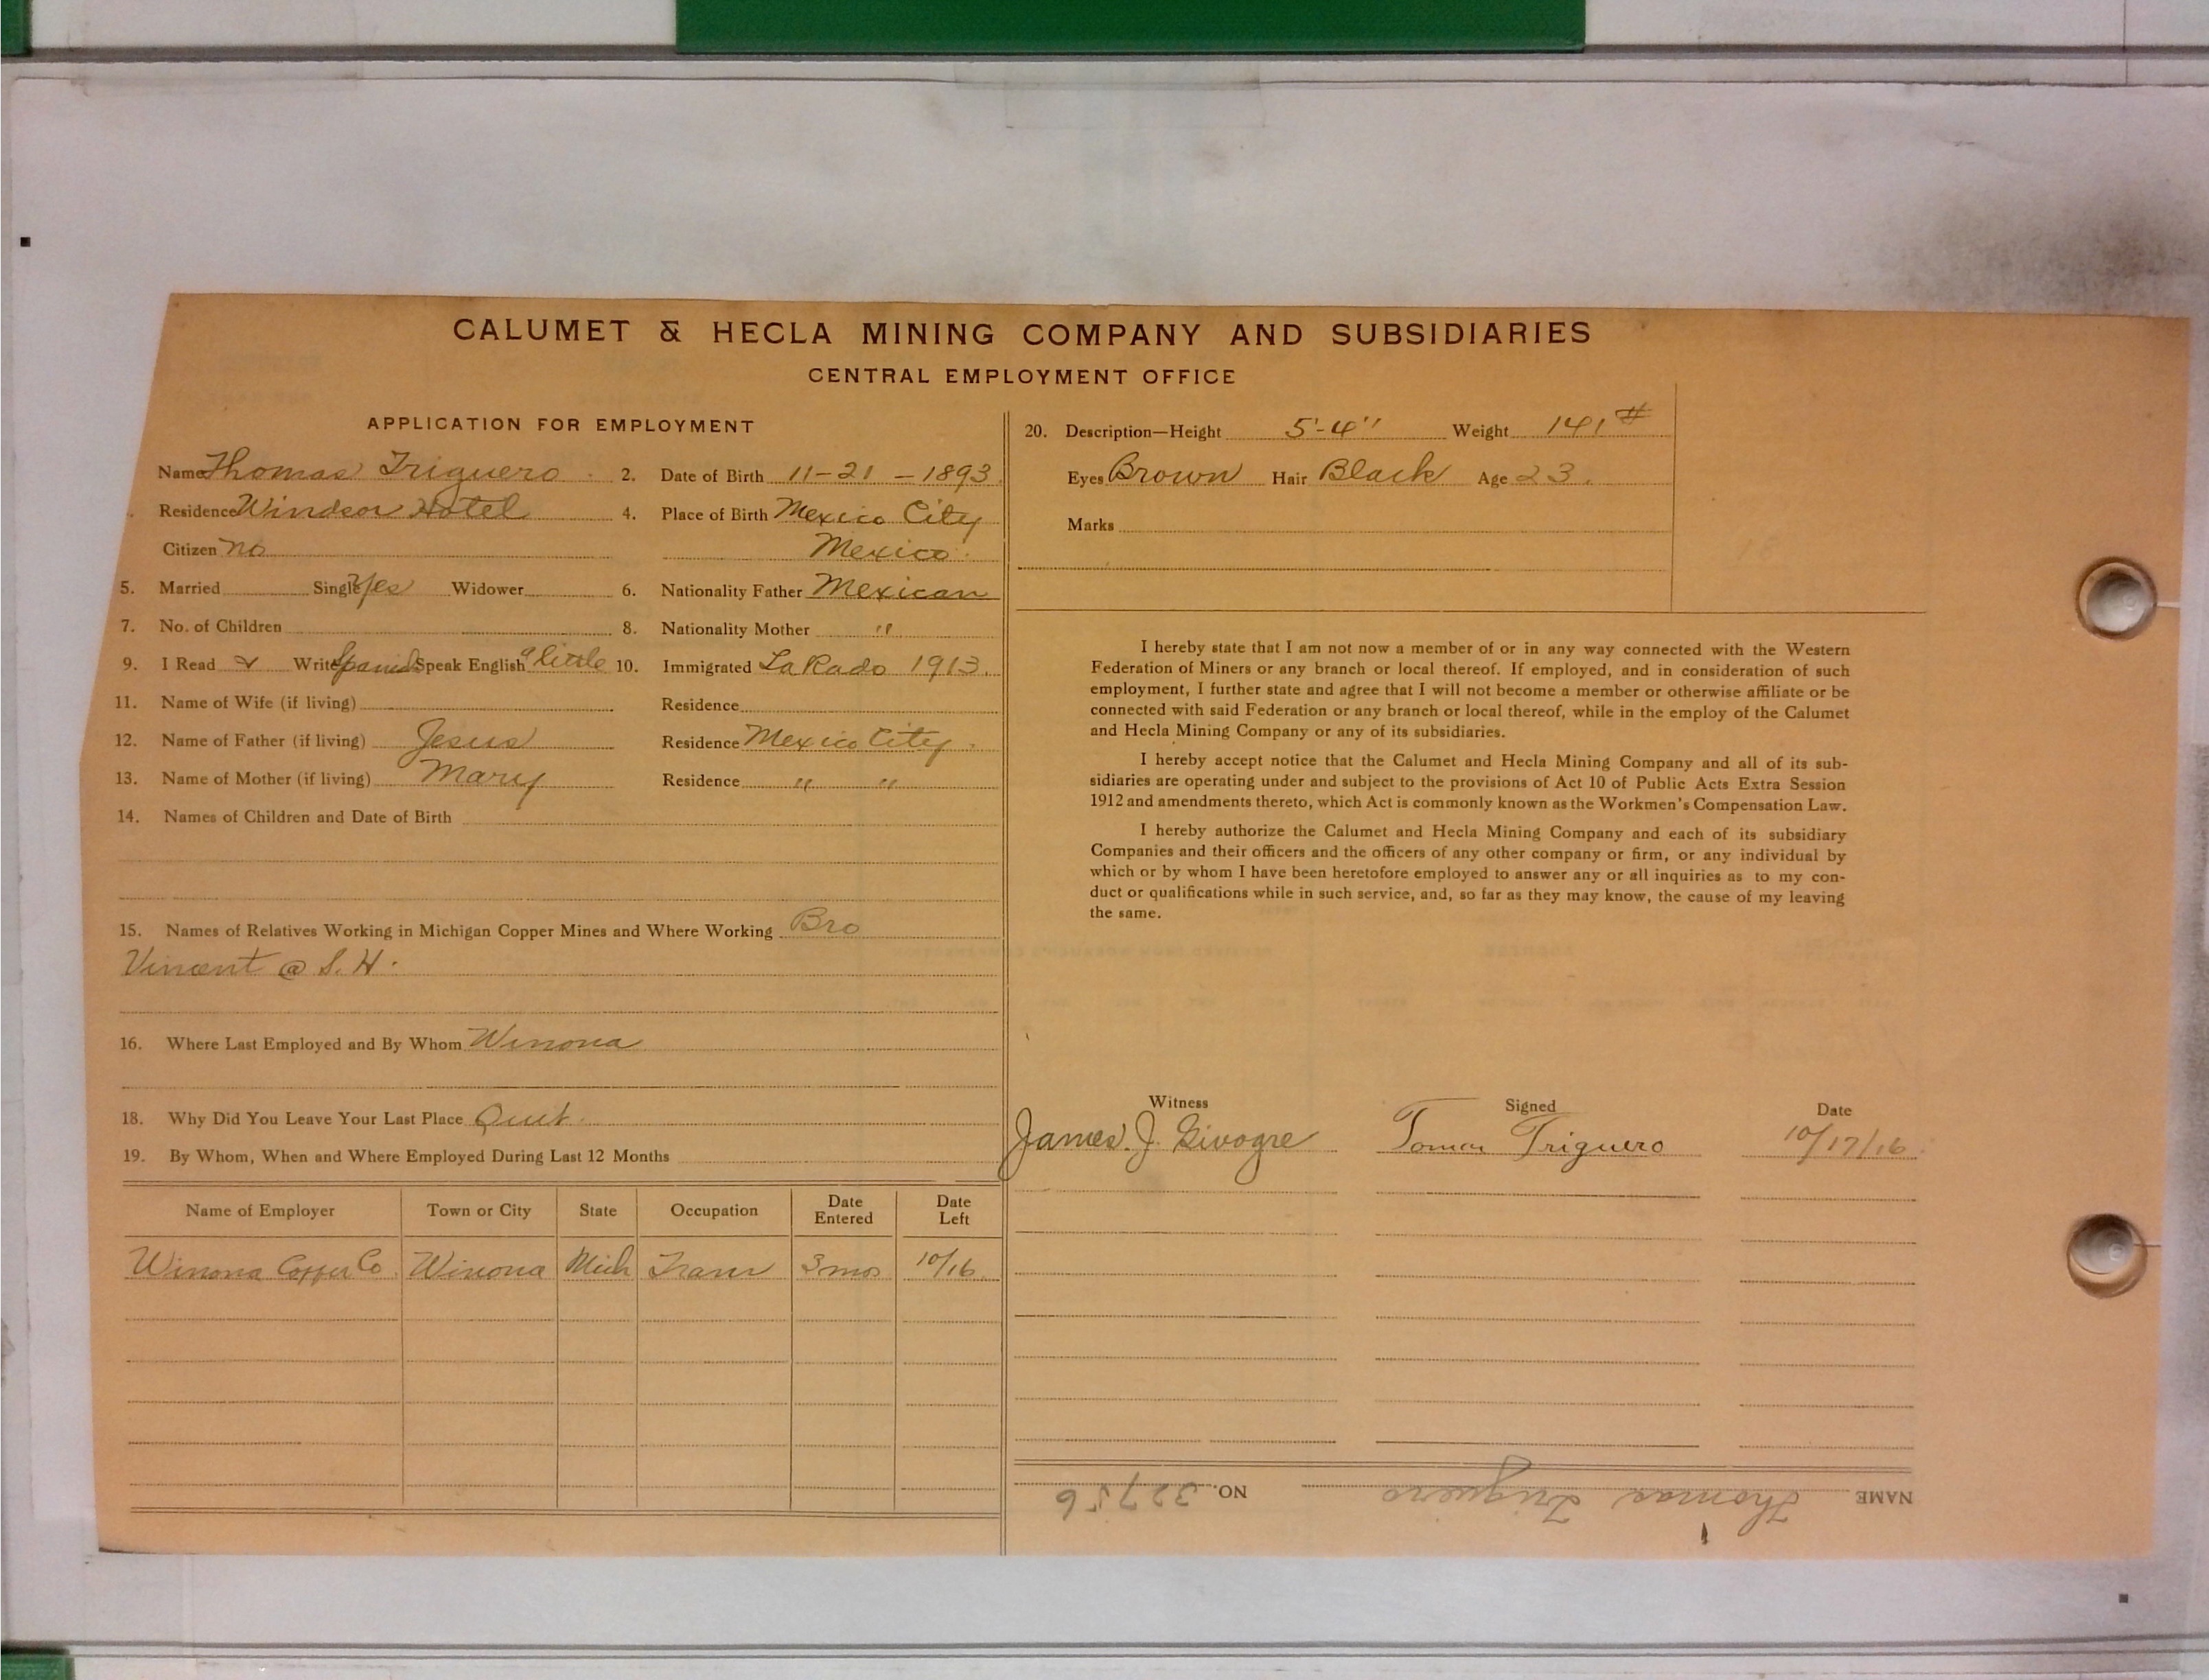 CALUMET & HECLA MINING COMPANY AND SUBSIDIARIES
CENTRAL EMPLOYMENT OFFICE
APPLICATION FOR EMPLOYMENT
Name Thomas Triguero 2. Date of Birth 11-21-1893
Residence Windsor Hotel 4. Place of Birth Mexico City
Citizen no Mexico
5. Married Single Yes Widower 6. Nationality Father Mexican
7. No. of Children 8. Nationality Mother "
9. I Read ✓ Write Spanish Speak English "little 10. Immigrated LaRado 1913.
11. Name of Wife (if living) Residence
12. Name of Father (if living) Jesus Residence Mexico City.
13. Name of Mother (if living) Mary Residence " "
14. Names of Children and Date of Birth
15. Names of Relatives Working in Michigan Copper Mines and Where Working Bro
Vincent @ S. H.
16. Where Last Employed and By Whom Winona
18. Why Did You Leave Your Last Place Quit.
19. By Whom, When and Where Employed During Last 12 Months
Name of Employer Town or City State Occupation Date Entered Date Left
Winona Copper Co. Winona Mich Tram 3 mos 10/16.
20. Description—Height 5'-4" Weight 141#
Eyes Brown Hair Black Age 23.
Marks
I hereby state that I am not now a member of or in any way connected with the Western
Federation of Miners or any branch or local thereof. If employed, and in consideration of such
employment, I further state and agree that I will not become a member or otherwise affiliate or be
connected with said Federation or any branch or local thereof, while in the employ of the Calumet
and Hecla Mining Company or any of its subsidiaries.
I hereby accept notice that the Calumet and Hecla Mining Company and all of its sub-
sidiaries are operating under and subject to the provisions of Act 10 of Public Acts Extra Session
1912 and amendments thereto, which Act is commonly known as the Workmen's Compensation Law.
I hereby authorize the Calumet and Hecla Mining Company and each of its subsidiary
Companies and their officers and the officers of any other company or firm, or any individual by
which or by whom I have been heretofore employed to answer any or all inquiries as to my con-
duct or qualifications while in such service, and, so far as they may know, the cause of my leaving
the same.
Witness Signed Date
James. J. Tomas Triguero 10/17/16
NAME Thomas Triguero NO. 32756